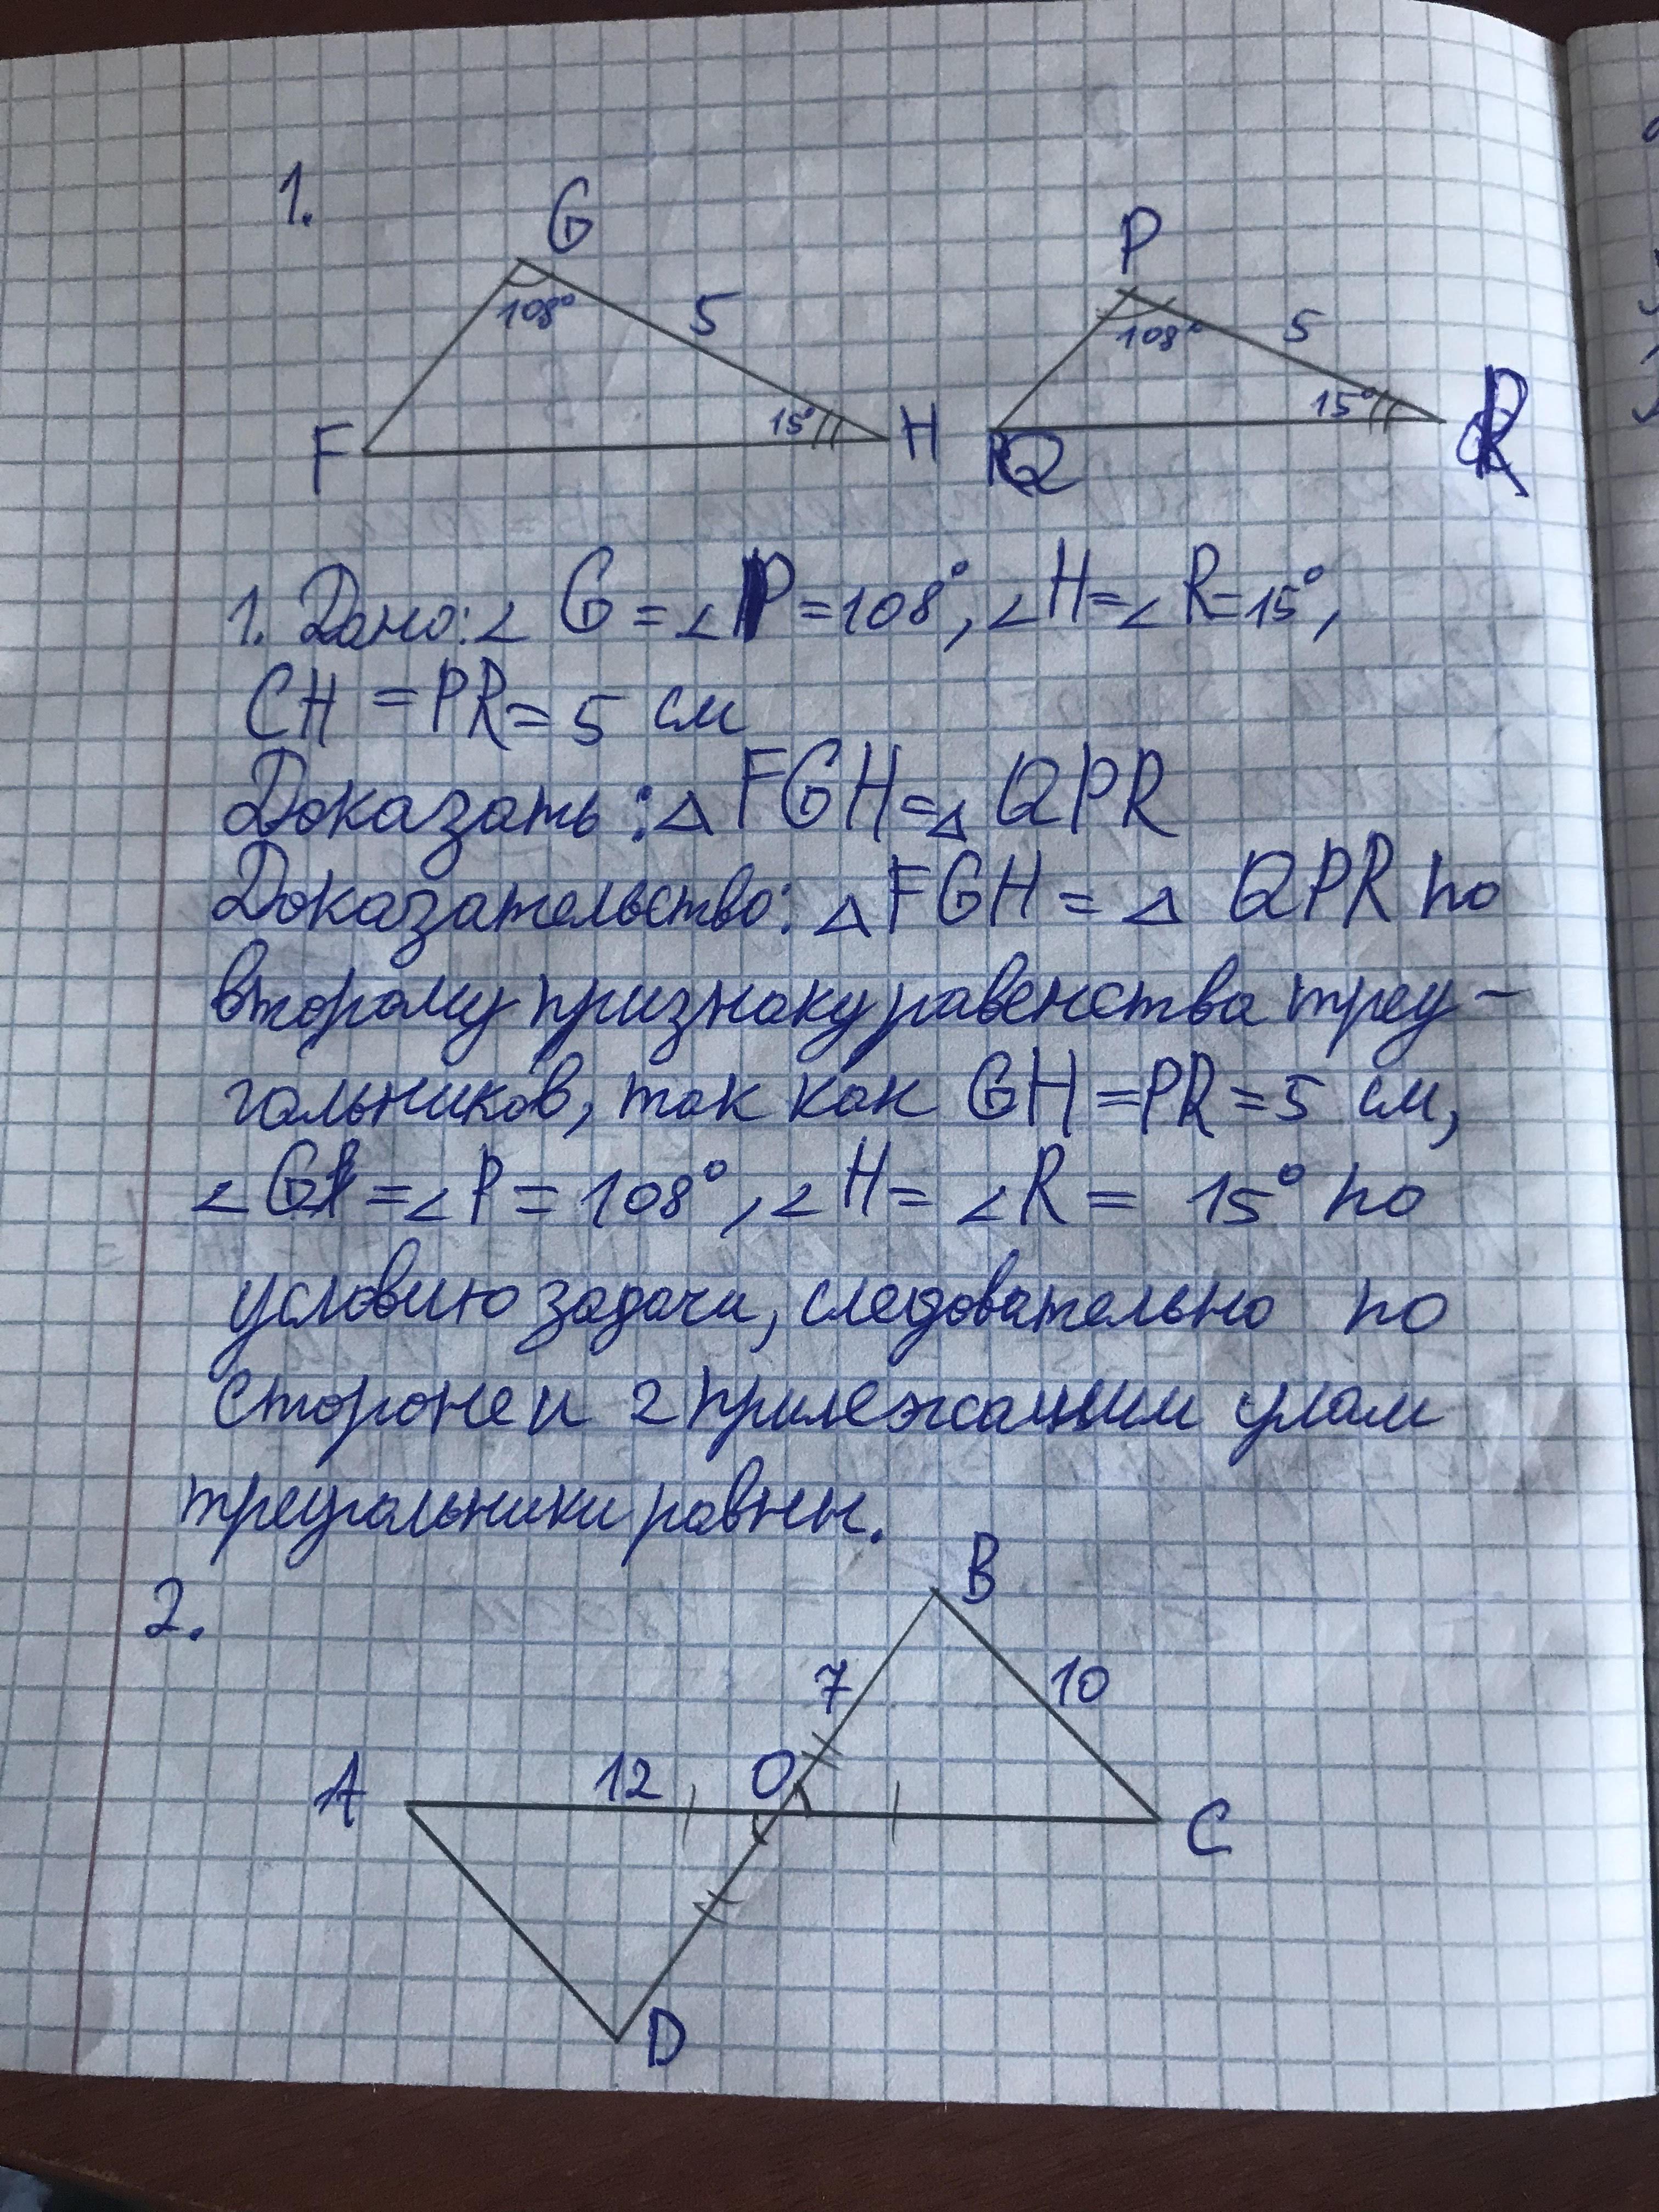 1.
G P
108° 5 108° 5
15° 15°
F H Q R
1. Дано: ∠ G = ∠ P = 108°, ∠ H = ∠ R = 15°,
CH = PR = 5 см
Доказать: △ FGH = △ QPR
Доказательство: △ FGH = △ QPR по
второму признаку равенства треу-
гольников, так как GH = PR = 5 см,
∠ G = ∠ P = 108°, ∠ H = ∠ R = 15° по
условию задачи, следовательно по
стороне и 2 прилежащим улам
треугольники равны.
2.
B
7 10
A 12 O C
D